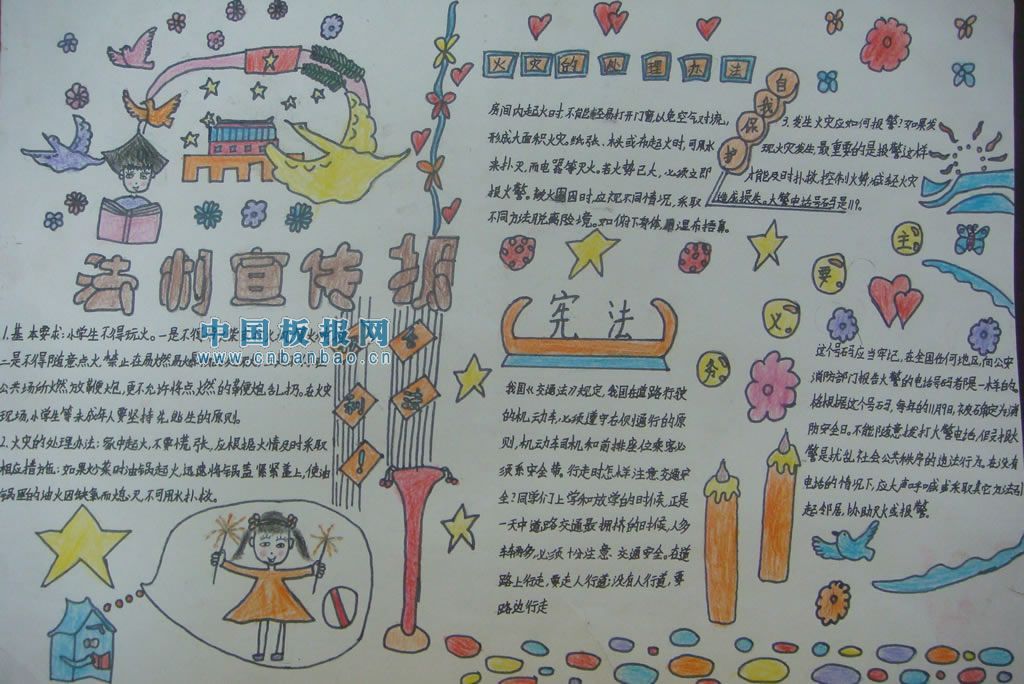 法制宣传报
1.基本要求:小学生不得玩火。一是不得
二是不得随意点火,禁止在易燃易爆
公共场所燃放鞭炮,更不允许将点燃的鞭炮乱扔。在火灾
现场,小学生等未成年人要坚持先逃生的原则。
2.火灾的处理办法:家中起火,不要慌张,应根据火情及时采取
相应措施:如果炒菜时油锅起火,迅速将锅盖紧紧盖上,使油
锅里的油火因缺氧而熄灭,不可用水扑救。
中国板报网
www.cnbanbao.cn
火灾的处理办法
房间内起火时,不能轻易打开门窗,以免空气对流,
形成大面积火灾。纸张、木头或布起火时,可用水
来扑灭,而电器等
火势已大,必须立即
报火警。被火围困时,应视不同情况,采取
不同方法脱离险境。如俯下身体,用湿布捂鼻。
自我保护
3.发生火灾应如何报警?如果发
现火灾发生,最重要的是报警,这样
才能及时扑救,控制火势,减轻火灾
造成损失。火警电话号码是119。
宪法
我国《交通法》规定,我国在道路行驶
的机动车,必须遵守右侧通行的原
则,机动车司机和前排座位乘客必
须系安全带。行走时怎样注意交通安
全?同学们上学和放学的时候,正是
一天中道路交通最拥挤的时候,人多
车辆多,必须十分注意交通安全。在道
路上行走,要走人行道;没有人行道,要
路边行走
主要义务
这个号码应当牢记,在全国任何地区,向公安
消防部门报告火警的电话号码都是一样的。
根据这个号码,每年的11月9日,被
确定为消
防安全日。不能随意拨打火警电话,
火
警是扰乱社会公共秩序的违法行为。在没有
电话的情况下,应大声呼喊或采取其它方法引
起邻居,协助灭火或报警。